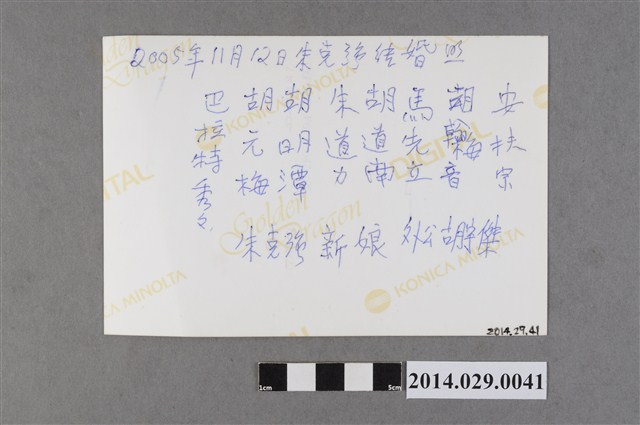 2005年11月12日朱克強结婚照
安扶宗
胡梅音
馬先立
胡道南
朱道力
胡明潭
胡元梅
巴拉特秀々
朱克強 新娘 外公胡宇傑
Golden Dragon
KONICA MINOLTA
DIGITAL
KONICA MINOLTA
KONICA MINOLTA
2014.29.41
1cm 5cm
2014.029.0041